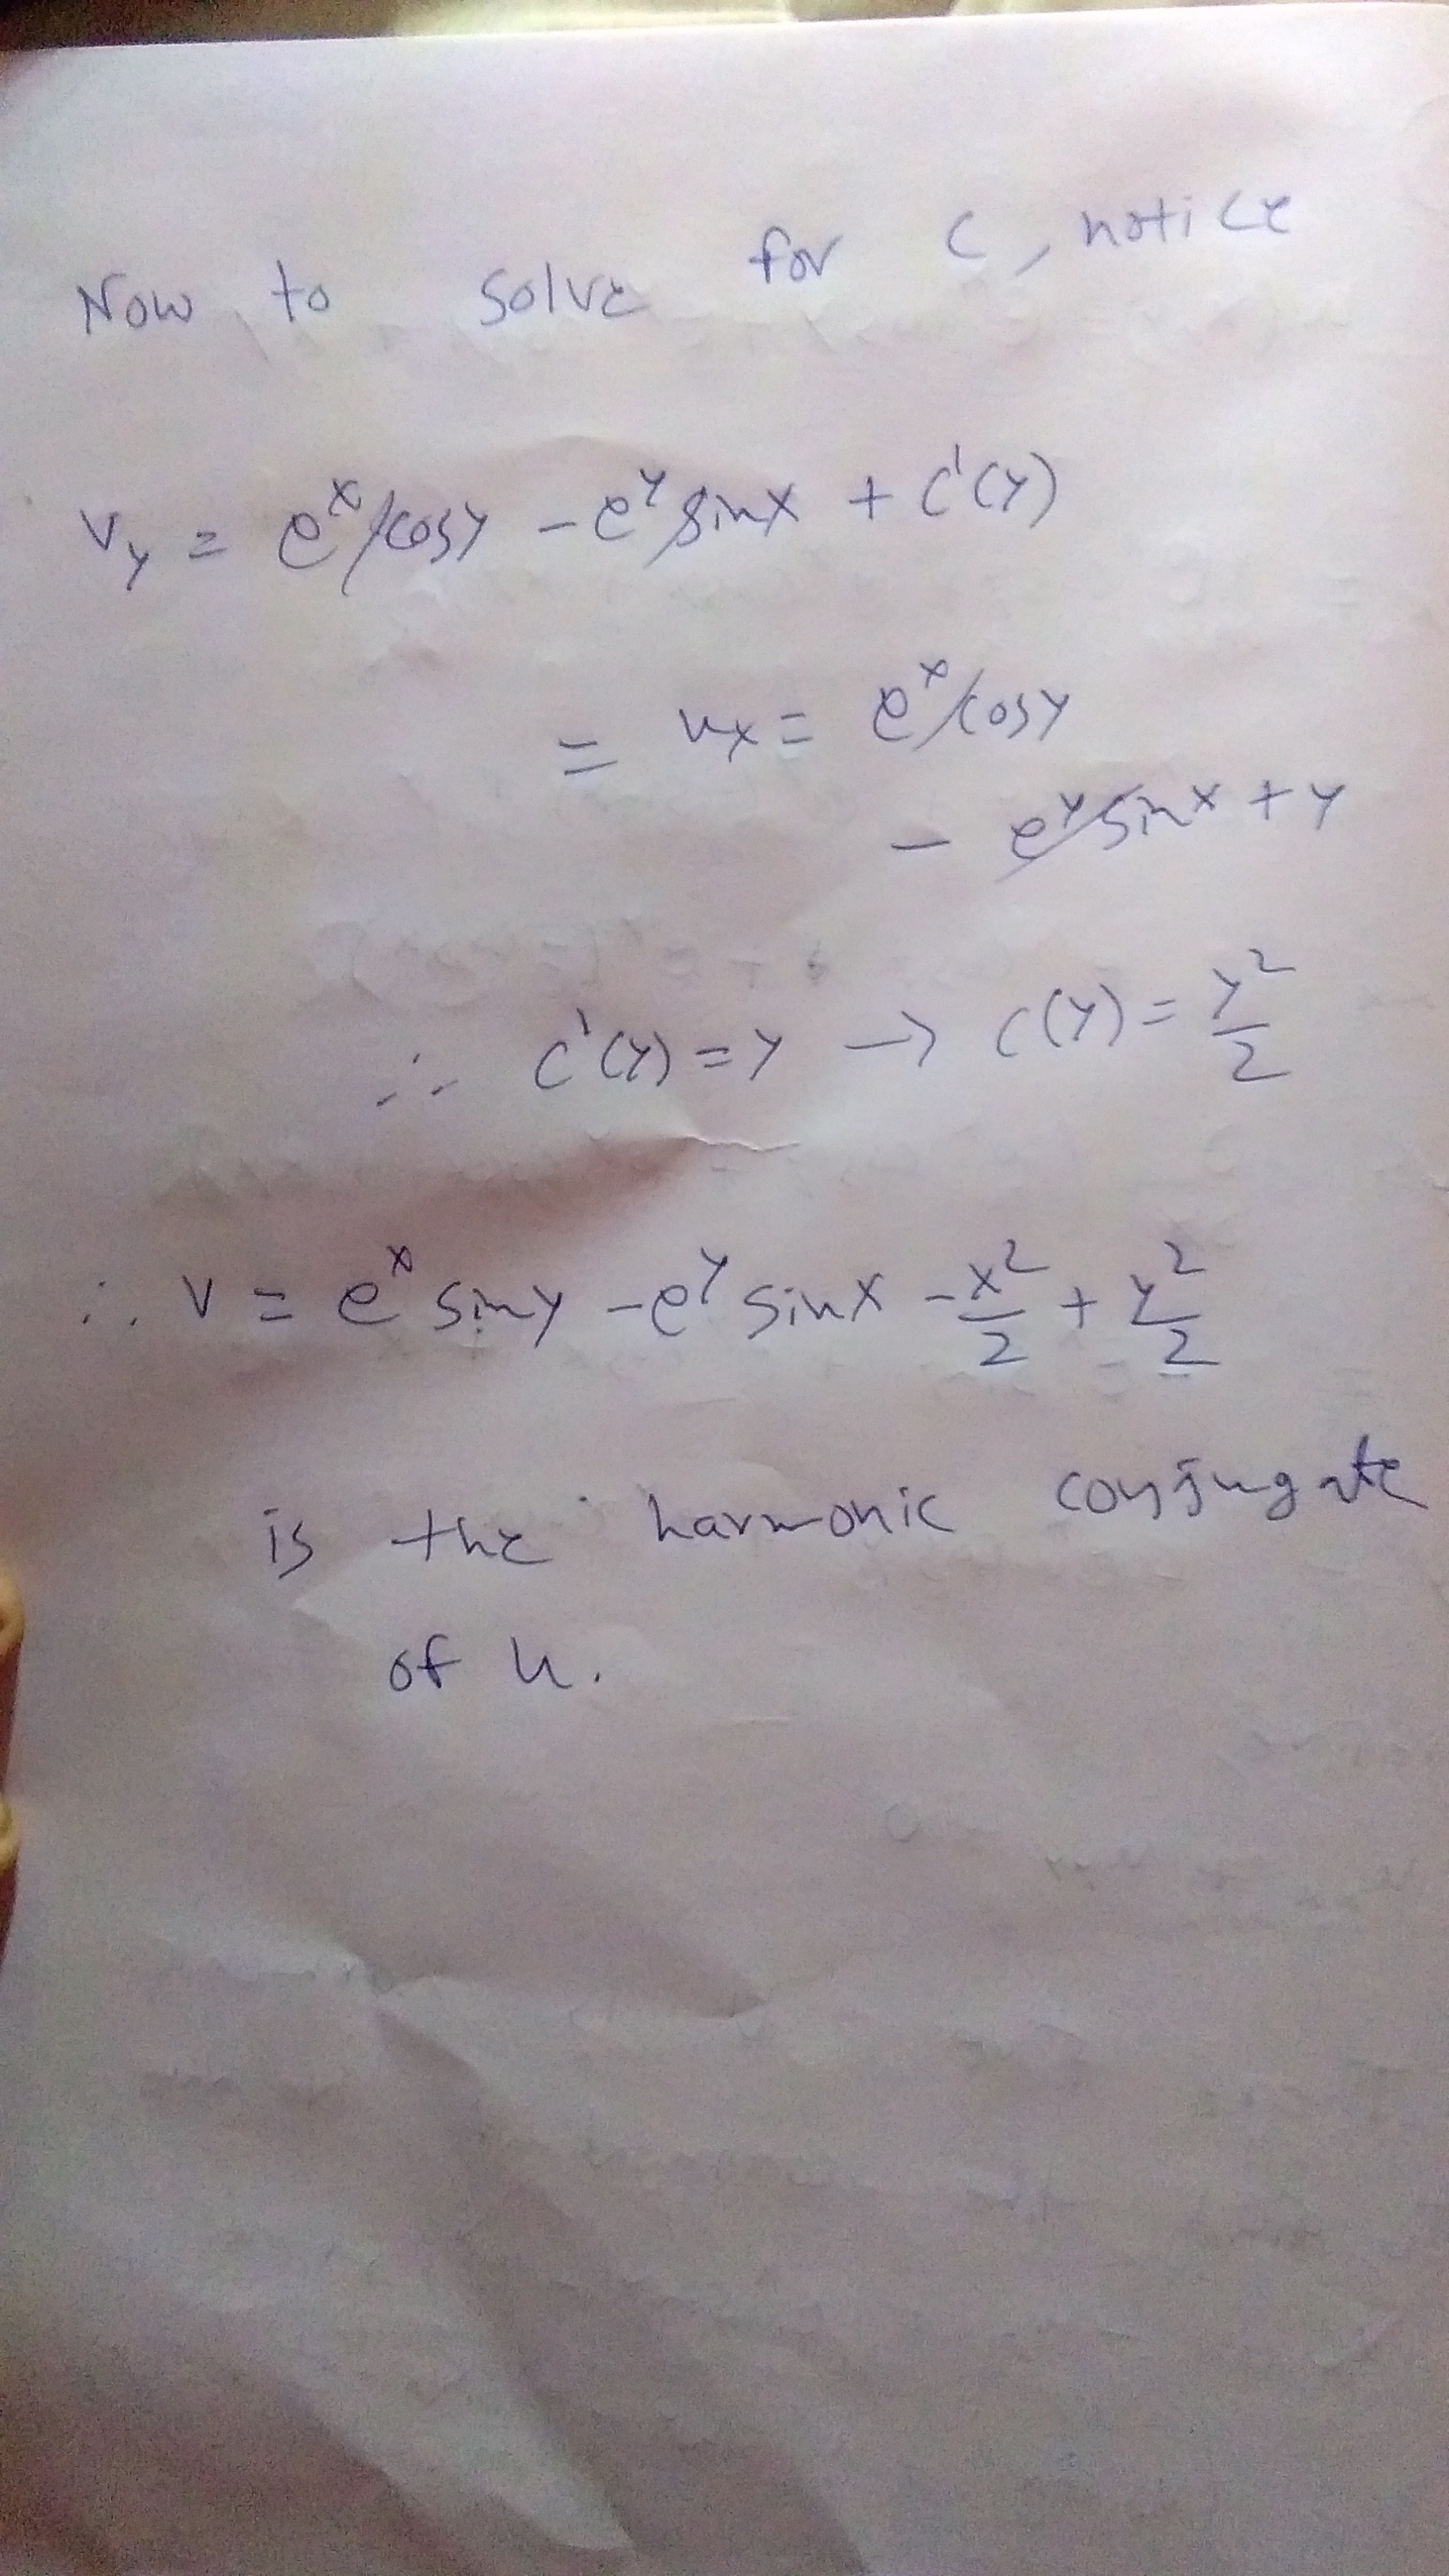 Now to solve for C, notice
v_y = e^x cosy - e^y sinx + C'(y)
= u_x = e^x cosy
- e^y sinx + y
∴ C'(y) = y → C(y) = y²/2
∴ v = e^x siny - e^y sinx - x²/2 + y²/2
is the harmonic conjugate
of u.